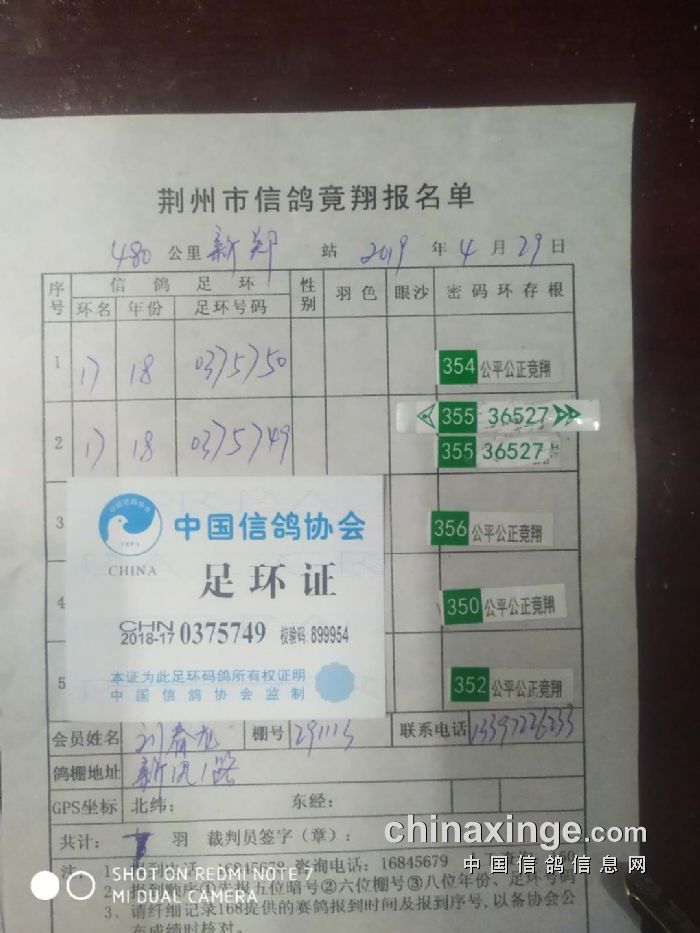 荆州市信鸽竟翔报名单
480 公里 新郑 站 2019 年 4 月 29 日
序号 信鸽足环 性别 羽色 眼沙 密码环存根
环名 年份 足环号码
1 17 18 0375750 354 公平公正竞翔
355 36527
2 17 18 0375749 355 36527
3 356 公平公正竞翔
4 350 公平公正竞翔
5 352 公平公正竞翔
中国信鸽协会
CHINA
足环证
CHN
2018-17 0375749 校验码:899954
本证为此足环码鸽所有权证明
中国信鸽协会监制
会员姓名 刘春龙 棚号 291113 联系电话 13397226233
鸽棚地址 新风1路
GPS坐标 北纬: 东经:
共计: 羽 裁判员签字(章):
注: 1、报到电话:16845678 咨询电话:16845679
2、报到顺序①先报五位暗号②六位棚号③八位年份、足环号码
3、请纤细记录168提供的赛鸽报到时间及报到序号,以备协会公
布成绩时核对。
chinaxinge.com
中国信鸽信息网
SHOT ON REDMI NOTE 7
MI DUAL CAMERA